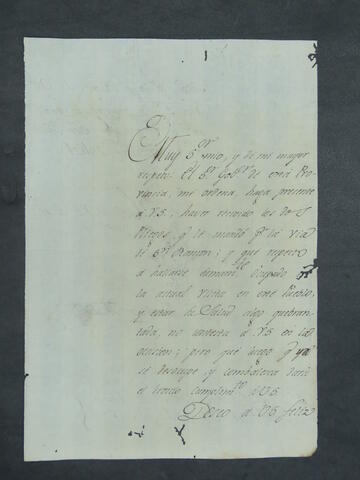 Muy S.or mio, y de mi mayor
respeto: El S.or Gob.or de esta Pro-
vincia, me ordena, haga presente
a V.S. haver recivido las dos
q.e le mandó p.r la via
de S.n Ramon; y que respecto
a hallarse ocupado en
la actual visita en este Pueblo,
y estar de salud algo quebran-
tada, no contexta a V.S. en la
ocasion; pero que luego q.e ya
se desocupe, y combalesca dará
el devido cumplim.to a V.S.
Deseo a V.S. feliz